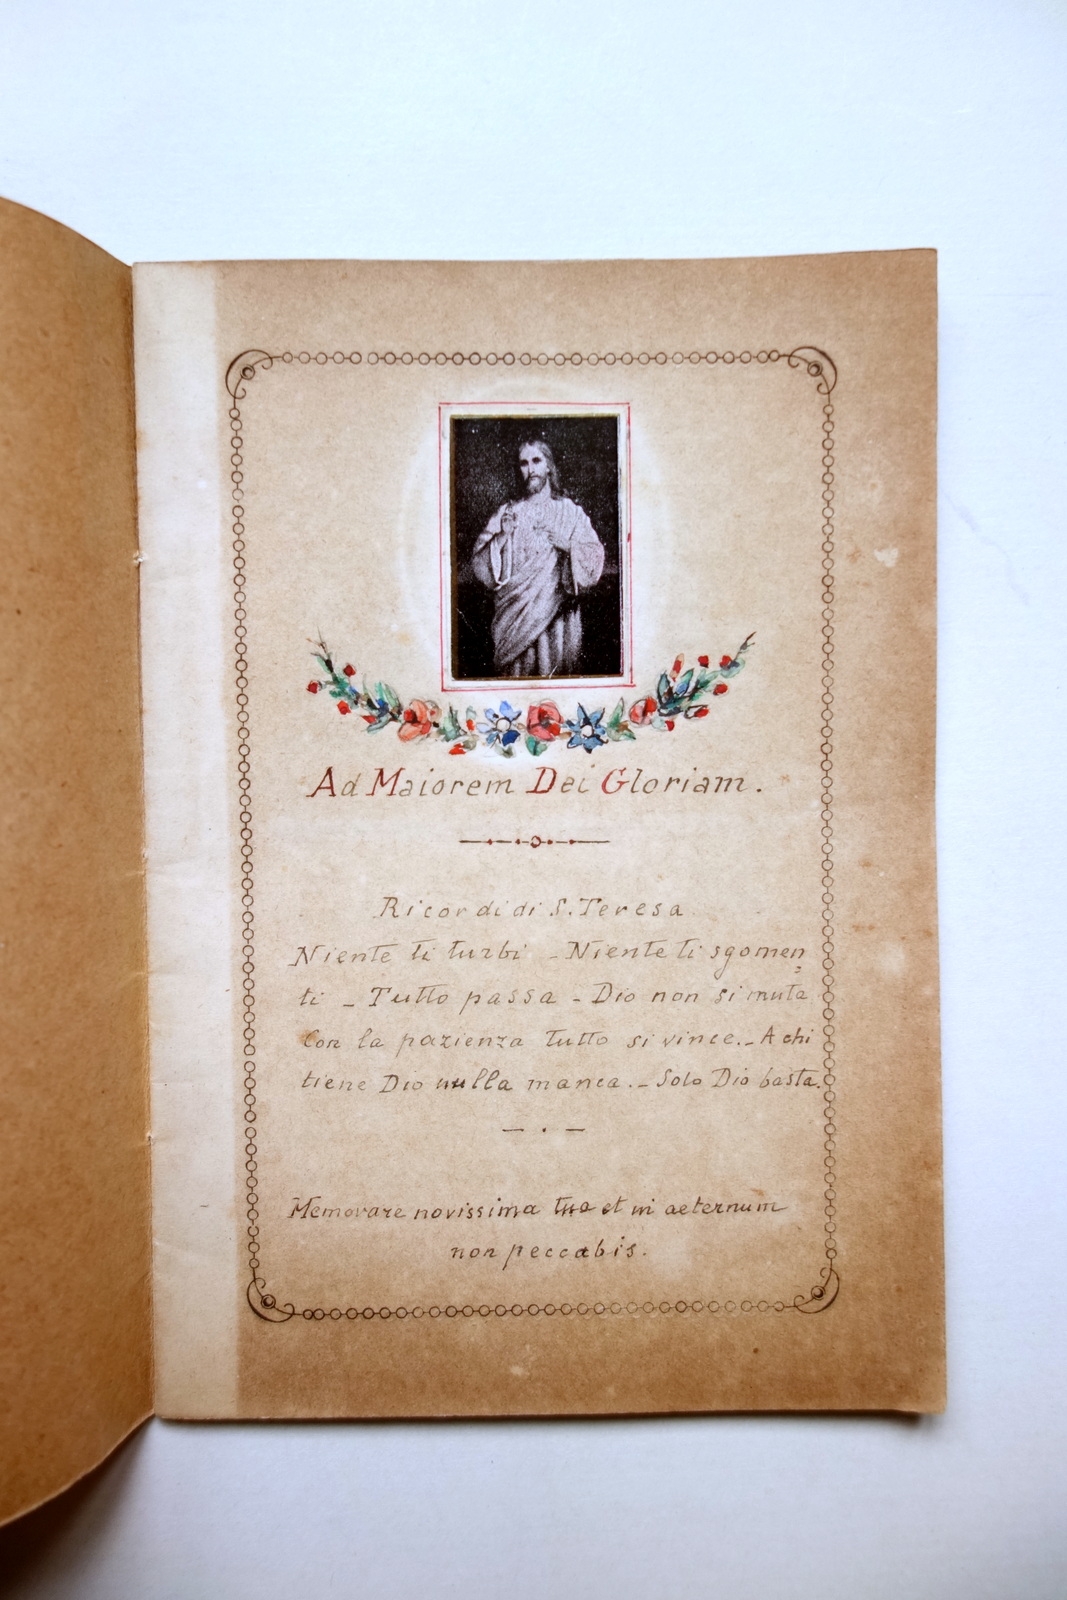 Ad Maiorem Dei Gloriam.
Ricordi di S. Teresa
Niente ti turbi - Niente ti sgomen
ti - Tutto passa - Dio non si muta
Con la pazienza tutto si vince. - A chi
tiene Dio nulla manca. - Solo Dio basta.
Memorare novissima tua et in aeternum
non peccabis.